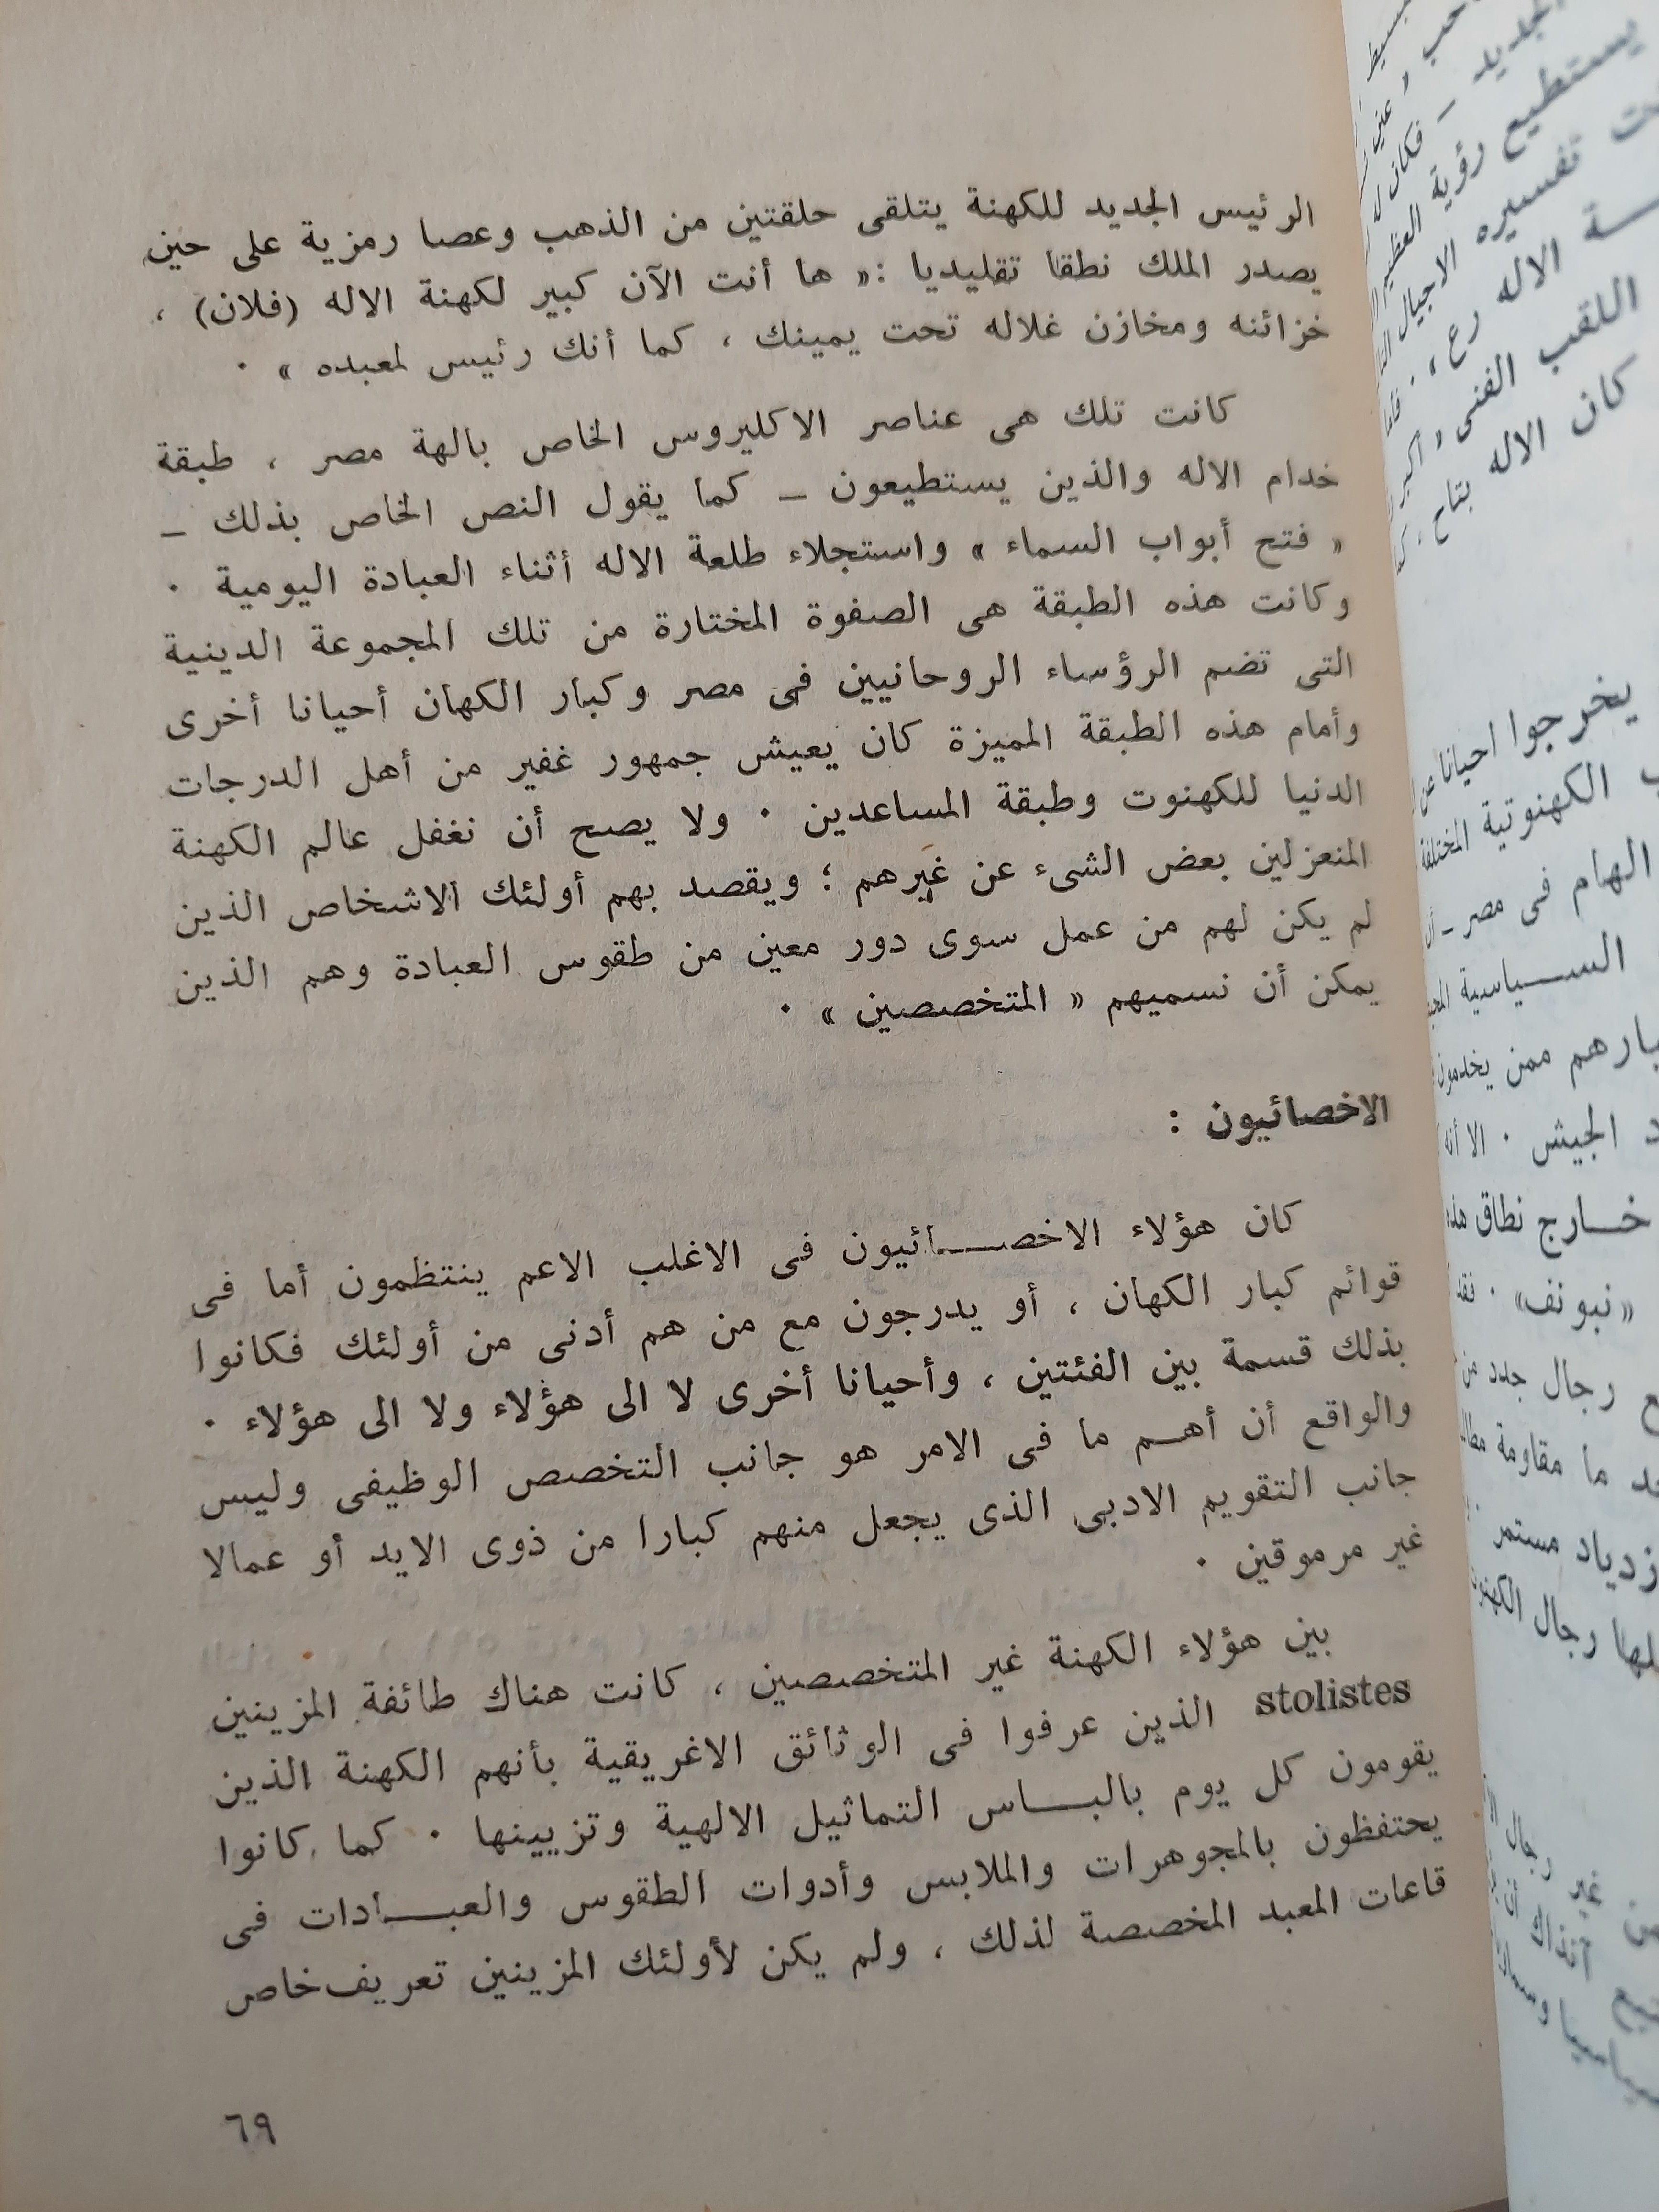 الرئيس الجديد للكهنة يتلقى حلقتين من الذهب وعصا رمزية على حين
يصدر الملك نطقا تقليديا : « ها أنت الآن كبير لكهنة الاله (فلان) ،
خزائنه ومخازن غلاله تحت يمينك ، كما أنك رئيس لمعبده » ٠
كانت تلك هى عناصر الاكليروس الخاص بالهة مصر ، طبقة
خدام الاله والذين يستطيعون – كما يقول النص الخاص بذلك –
« فتح أبواب السماء » واستجلاء طلعة الاله أثناء العبادة اليومية ٠
وكانت هذه الطبقة هى الصفوة المختارة من تلك المجموعة الدينية
التى تضم الرؤساء الروحانيين فى مصر وكبار الكهان أحيانا أخرى
وأمام هذه الطبقة المميزة كان يعيش جمهور غفير من أهل الدرجات
الدنيا للكهنوت وطبقة المساعدين ٠ ولا يصح أن نغفل عالم الكهنة
المنعزلين بعض الشىء عن غيرهم ؛ ويقصد بهم أولئك الاشخاص الذين
لم يكن لهم من عمل سوى دور معين من طقوس العبادة وهم الذين
يمكن أن نسميهم « المتخصصين » ٠
الاخصائيون :
كان هؤلاء الاخصـــائيون فى الاغلب الاعم ينتظمون أما فى
قوائم كبار الكهان ، أو يدرجون مع من هم أدنى من أولئك فكانوا
بذلك قسمة بين الفئتين ، وأحيانا أخرى لا الى هؤلاء ولا الى هؤلاء ٠
والواقع أن أهـم ما فى الامر هو جانب التخصص الوظيفى وليس
جانب التقويم الادبى الذى يجعل منهم كبارا من ذوى الايد أو عمالا
غير مرموقين ٠
بين هؤلاء الكهنة غير المتخصصين ، كانت هناك طائفة المزينين
stolistes الذين عرفوا فى الوثائق الاغريقية بأنهم الكهنة الذين
يقومون كل يوم بالبـــاس التماثيل الالهية وتزيينها ٠ كما كانوا
يحتفظون بالمجوهرات والملابس وأدوات الطقوس والعبـــادات فى
قاعات المعبد المخصصة لذلك ، ولم يكن لأولئك المزينين تعريف خاص
٦٩
يستطيع رؤية العظيم
تفسيره الاجيال
الاله رع ،
اللقب الفنى « أكبر
كان الاله بتاح ،
يخرجوا احيانا عن
الكهنوتية المختلفة
الهام فى مصر –
الســـياسية
ممن يخدمون
الجيش ٠ الا أنه
خـــارج نطاق هذه
«نبونف» ٠ فقد
رجال جدد من
ما مقاومة
مستمر
رجال الكهنوت